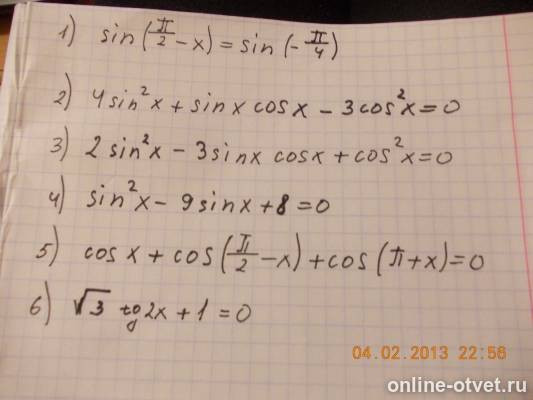 1) sin(π/2 - x) = sin(-π/4)
2) 4sin²x + sinx cosx - 3cos²x = 0
3) 2sin²x - 3sinx cosx + cos²x = 0
4) sin²x - 9sinx + 8 = 0
5) cosx + cos(π/2 - x) + cos(π + x) = 0
6) √3 tg2x + 1 = 0
04.02.2013 22:56
online-otvet.ru